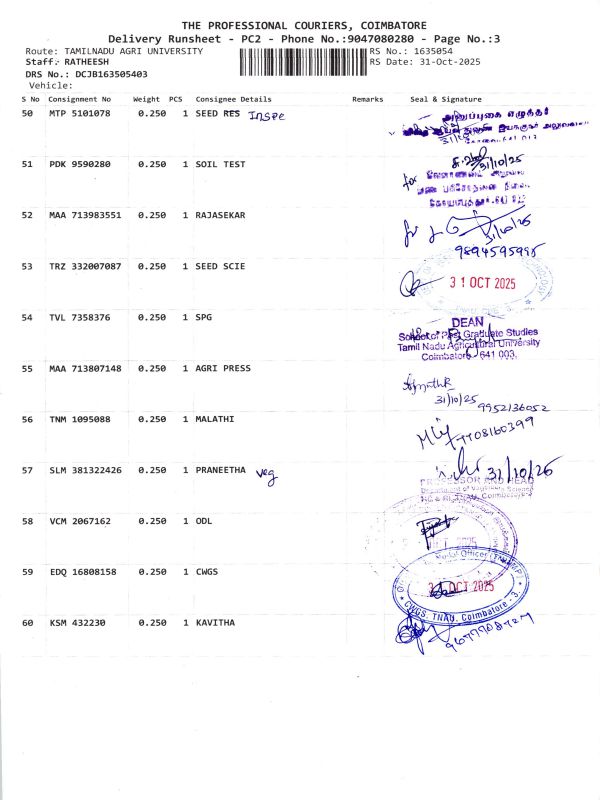 THE PROFESSIONAL COURIERS, COIMBATORE
Delivery Runsheet - PC2 - Phone No.:9047080280 - Page No.:3
Route: TAMILNADU AGRI UNIVERSITY RS No.: 1635054
Staff: RATHEESH RS Date: 31-Oct-2025
DRS No.: DCJB163505403
Vehicle:
S No Consignment No Weight PCS Consignee Details Remarks Seal & Signature
50 MTP 5101078 0.250 1 SEED RES Inspe
அனுப்புகை எழுத்தர்
51 PDK 9590280 0.250 1 SOIL TEST
31/10/25
for
52 MAA 713983551 0.250 1 RAJASEKAR
31/10/25
9894595995
53 TRZ 332007087 0.250 1 SEED SCIE
31 OCT 2025
54 TVL 7358376 0.250 1 SPG
DEAN
School of Post Graduate Studies
Tamil Nadu Agricultural University
Coimbatore 641 003.
55 MAA 713807148 0.250 1 AGRI PRESS
31/10/25
9952136052
56 TNM 1095088 0.250 1 MALATHI
7708160399
57 SLM 381322426 0.250 1 PRANEETHA veg
31/10/25
PROFESSOR AND HEAD
Department of Vegetable Science
HC & RI, TNAU, Coimbatore-3
58 VCM 2067162 0.250 1 ODL
2025
59 EDQ 16808158 0.250 1 CWGS
Nodal Officer
31 OCT 2025
CWGS, TNAU, Coimbatore - 3.
60 KSM 432230 0.250 1 KAVITHA